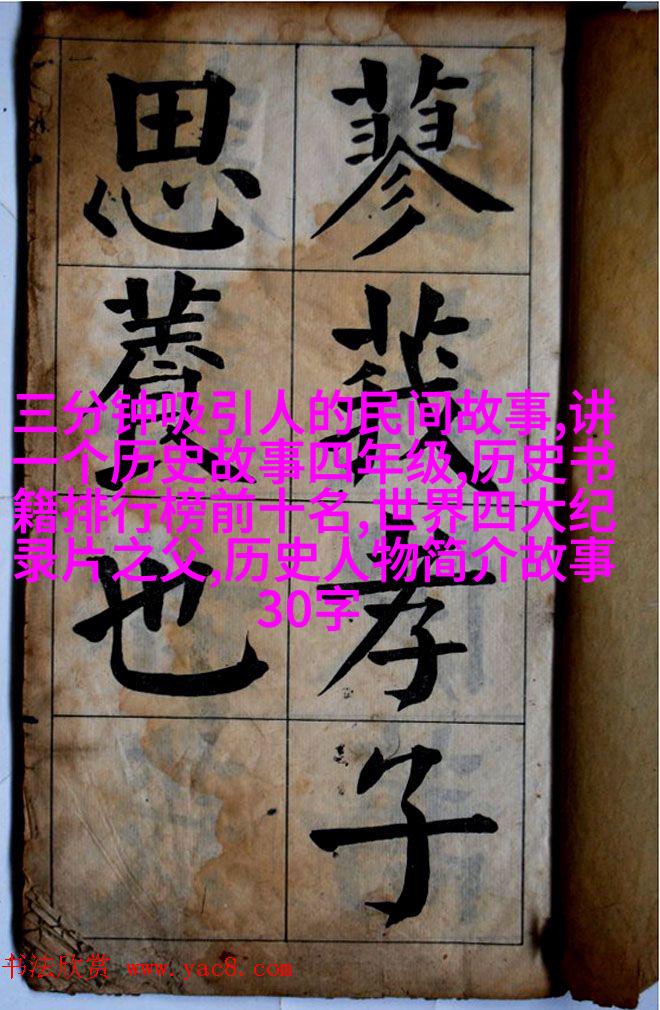 蓼莪孝子
思養也
三分钟吸引人的民间故事,讲
一个历史故事四年级,历史书
籍排行榜前十名,世界四大纪
录片之父,历史人物简介故事
30字
书法欣赏 www.yac8.com